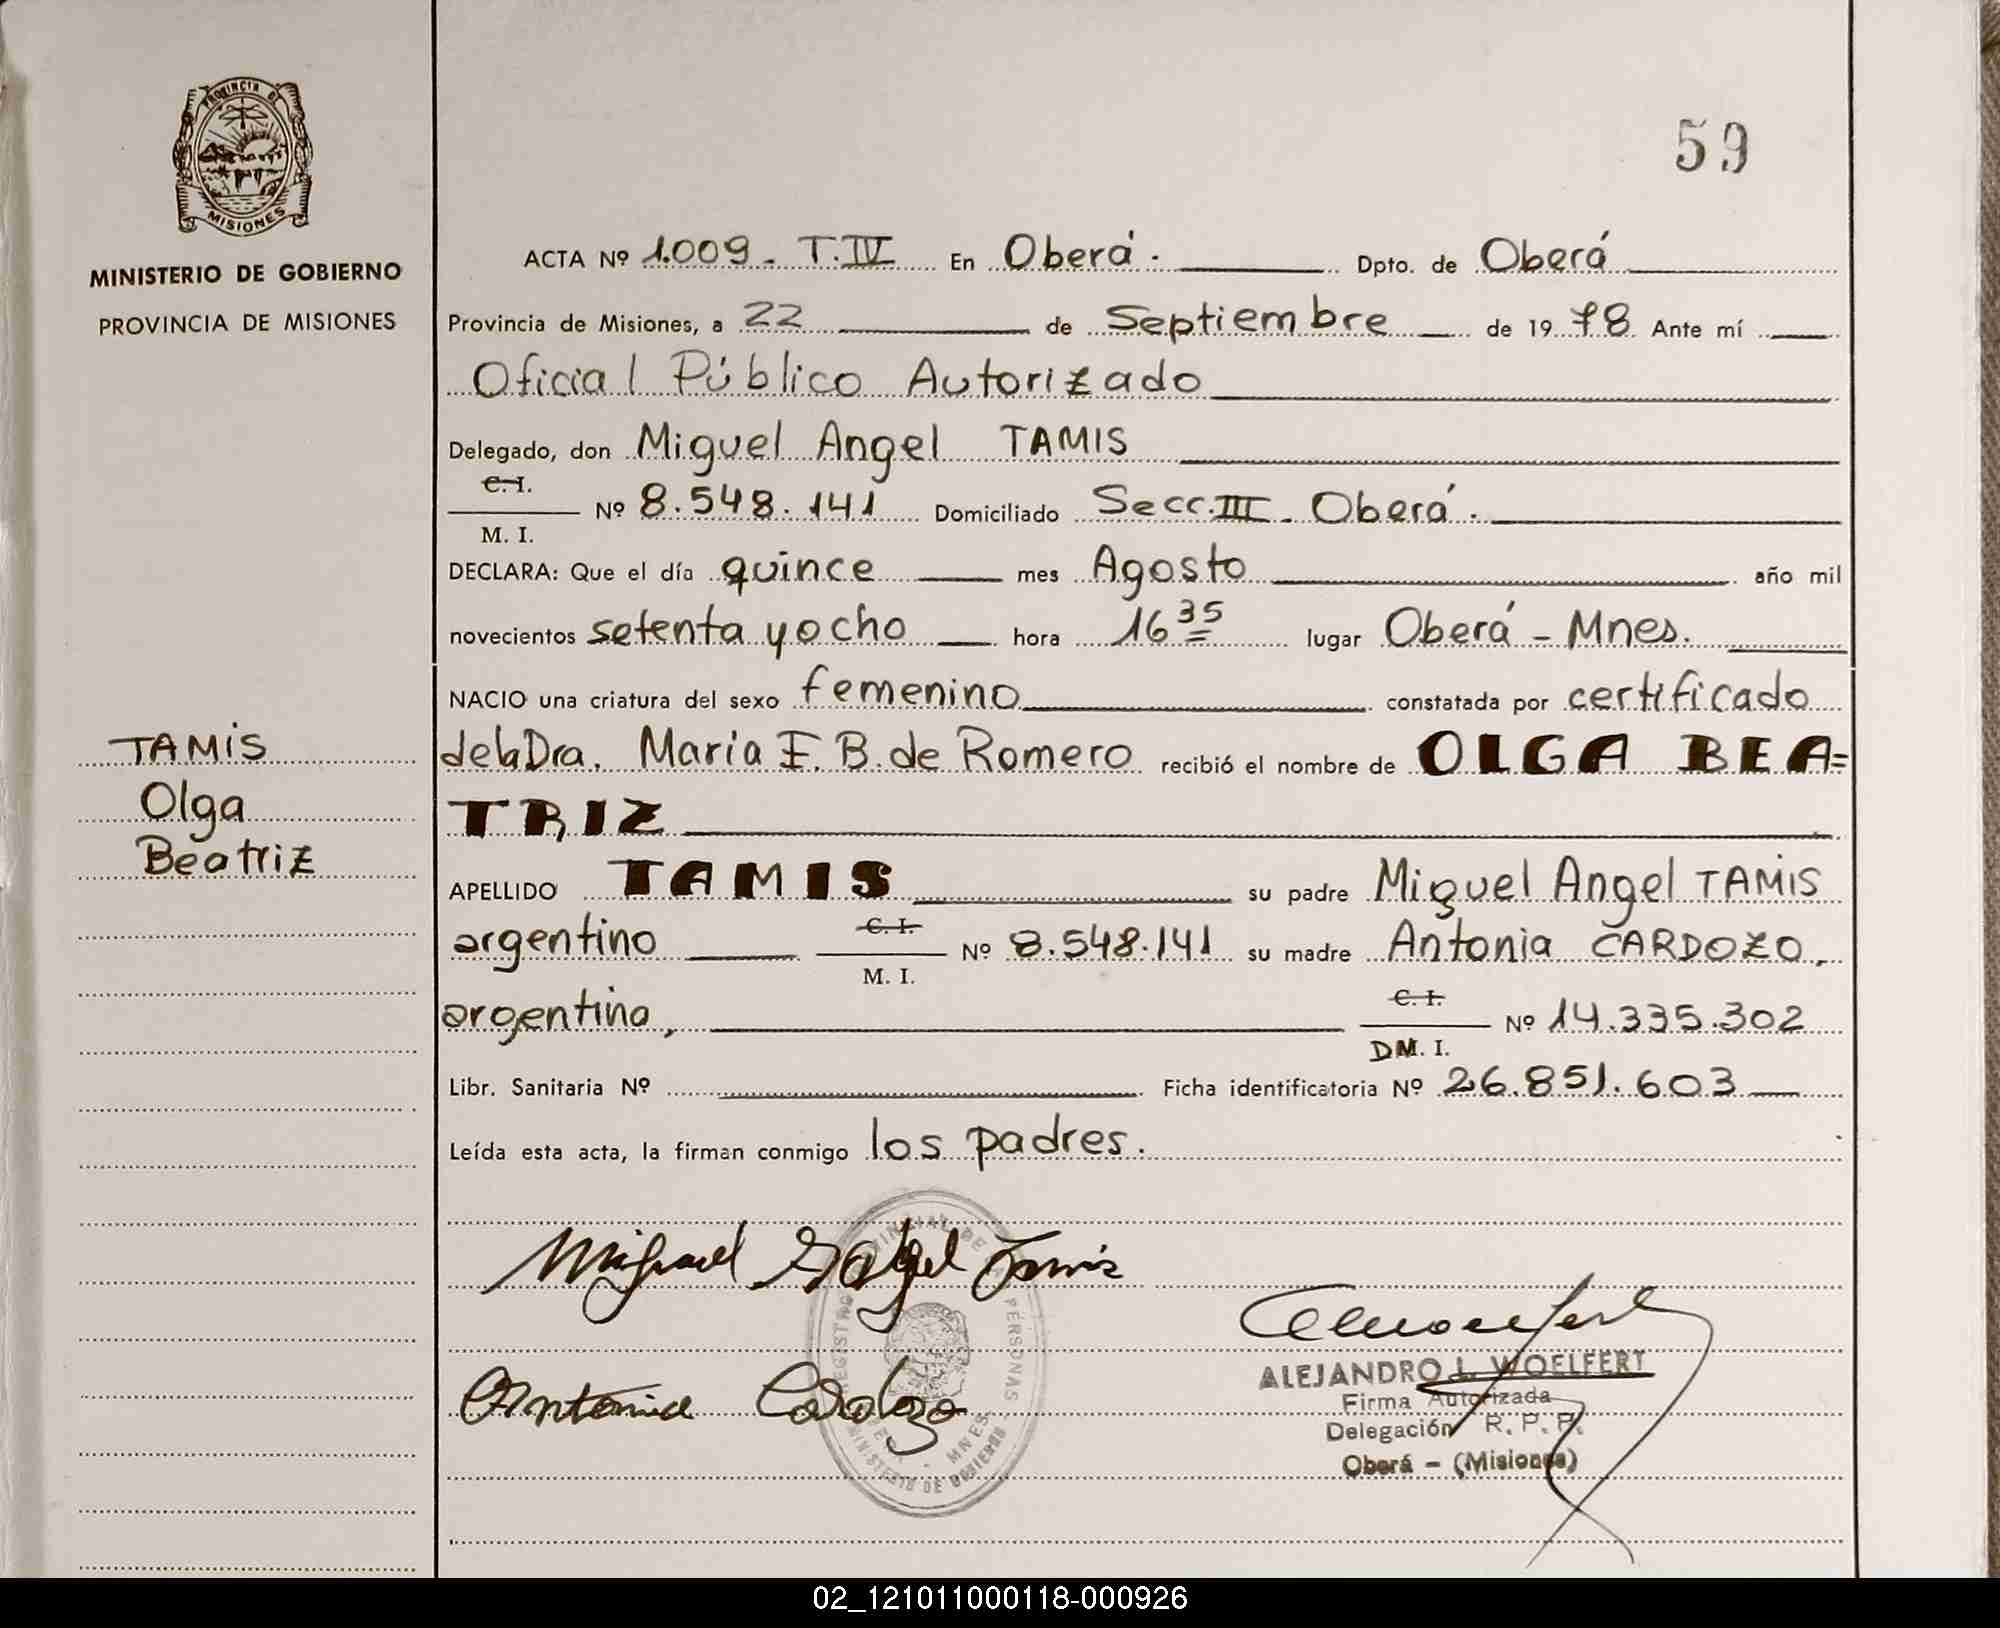 PROVINCIA DE
MISIONES
MINISTERIO DE GOBIERNO
PROVINCIA DE MISIONES
59
ACTA Nº 1.009 - T. IV En Oberá. Dpto. de Oberá
Provincia de Misiones, a 22 de Septiembre de 1978 Ante mí
Oficial Público Autorizado
Delegado, don Miguel Angel TAMIS
C. I.
Nº 8.548.141 Domiciliado Secc. III - Oberá.
M. I.
DECLARA: Que el día quince mes Agosto año mil
novecientos setenta y ocho hora 16 35 lugar Oberá - Mnes.
NACIO una criatura del sexo femenino constatada por certificado
de la Dra. Maria E. B. de Romero recibió el nombre de OLGA BEA=
TRIZ
TAMIS
Olga
Beatriz
APELLIDO TAMIS su padre Miguel Angel TAMIS
argentino C. I. Nº 8.548.141 su madre Antonia CARDOZO,
M. I.
argentina, C. I. Nº 14.335.302
DM. I.
Libr. Sanitaria Nº Ficha identificatoria Nº 26.851.603
Leída esta acta, la firman conmigo los padres.
Miguel Angel Tamis
Antonia Cardozo
ALEJANDRO L. WOELFERT
Firma Autorizada
Delegación R. P. P.
Oberá - (Misiones)
02_121011000118-000926